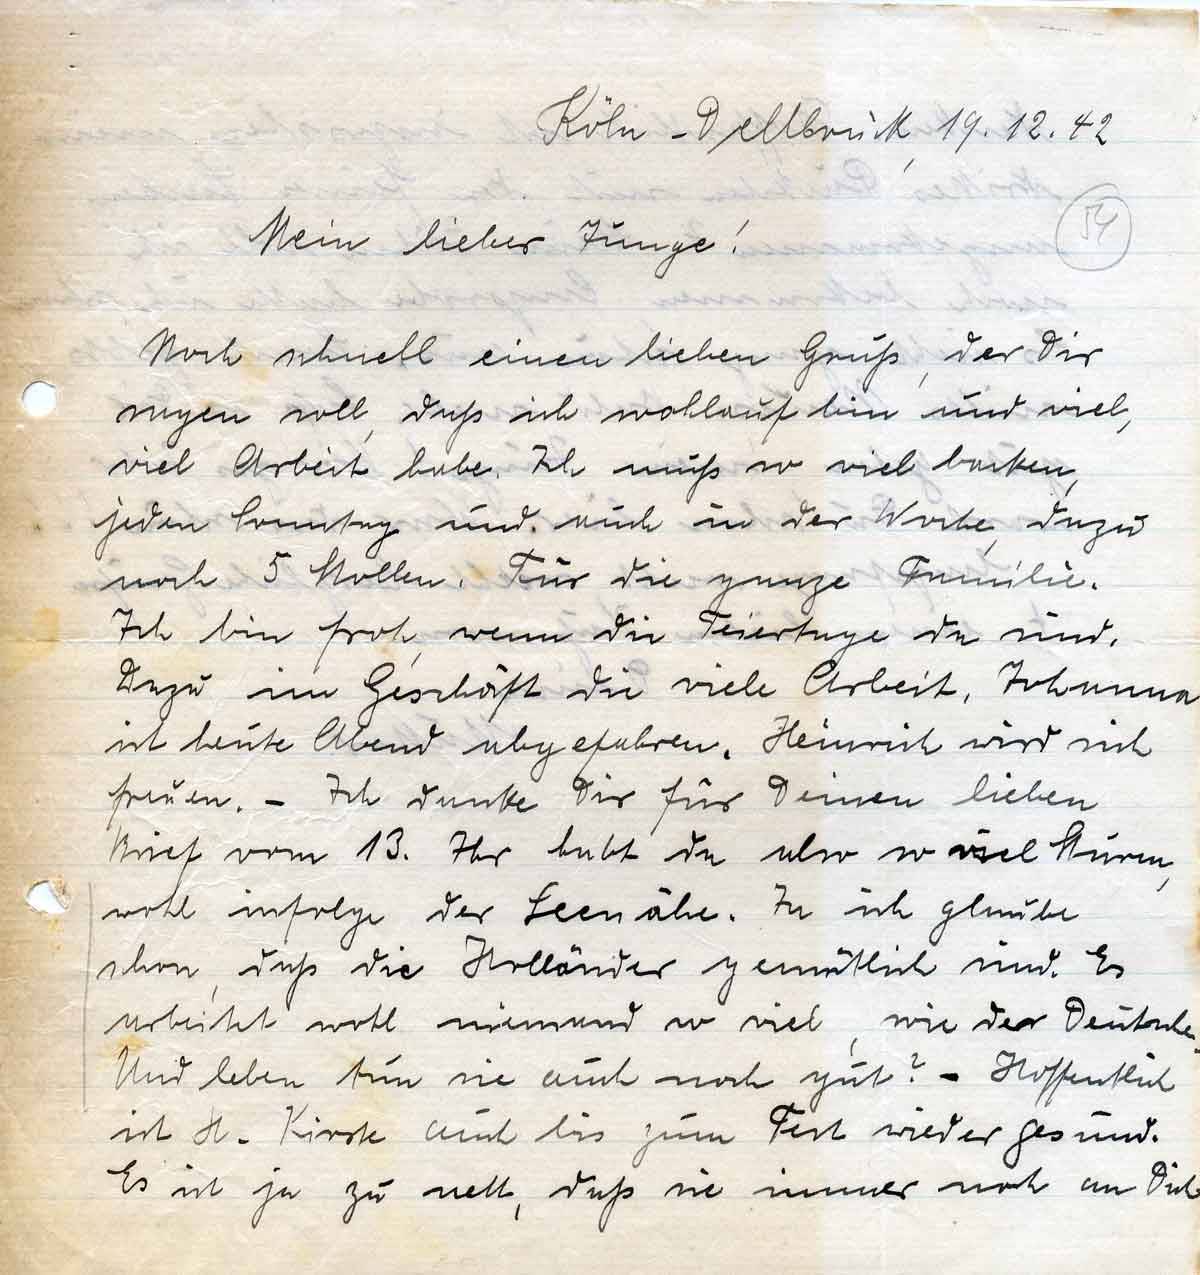 Köln-Dellbrück, 19.12.42
54
Mein lieber Junge!
Noch schnell einen lieben Gruß, der Dir
sagen soll, daß ich wohlauf bin und viel,
viel Arbeit habe. Ich muß so viel backen,
jeden Sonntag und auch in der Woche, dazu
noch 5 Stollen. Für die ganze Familie.
Ich bin froh, wenn die Feiertage da sind.
Dazu im Geschäft die viele Arbeit. Johanna
ist heute Abend abgefahren. Heinrich wird sich
freuen. – Ich danke Dir für Deinen lieben
Brief vom 13. Ihr habt da also so viel Sturm,
wohl infolge der Seenähe. Ja ich glaube
schon, daß die Holländer gemütlich sind. Es
arbeitet wohl niemand so viel, wie der Deutsche.
Und leben tun sie auch noch gut? – Hoffentlich
ist H. Kirste auch bis zum Fest wieder gesund.
Es ist ja zu nett, daß sie immer noch an Dich